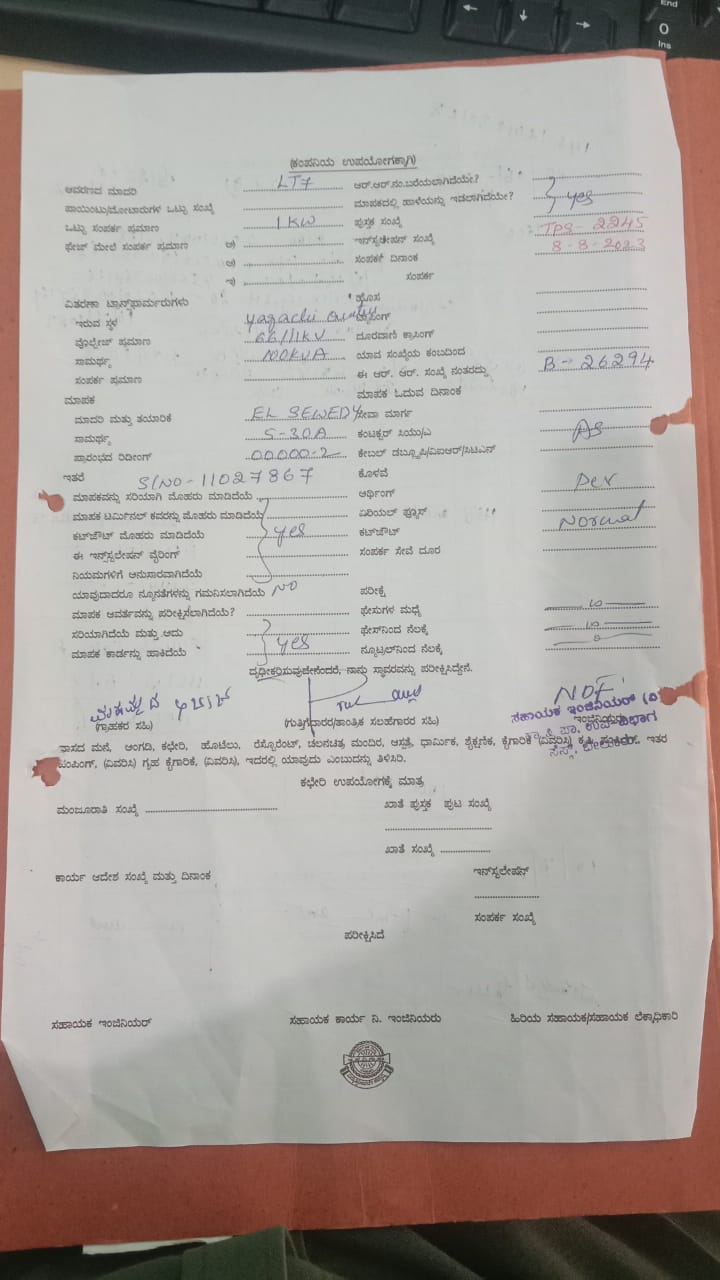 End
0
Ins
(ಕಂಪನಿಯ ಉಪಯೋಗಕ್ಕಾಗಿ)
ಆವರಣದ ಮಾದರಿ LT7 ಆರ್.ಆರ್.ನಂ.ಬರೆಯಲಾಗಿದೆಯೇ?
ಪಾಯಿಂಟು/ಮೋಟಾರುಗಳ ಒಟ್ಟು ಸಂಖ್ಯೆ ಮಾಪಕದಲ್ಲಿ ಹಾಳೆಯನ್ನು ಇಡಲಾಗಿದೆಯೇ? yes
ಒಟ್ಟು ಸಂಪರ್ಕ ಪ್ರಮಾಣ 1 KW ಪುಸ್ತಕ ಸಂಖ್ಯೆ TPS-2245
ಫೇಜ್ ಮೇಲೆ ಸಂಪರ್ಕ ಪ್ರಮಾಣ ಅ) ಇನ್‌ಸ್ಟಲೇಷನ್ ಸಂಖ್ಯೆ 8-8-2023
ಆ) ಸಂಪರ್ಕ ದಿನಾಂಕ
ಇ) ಸಂಪರ್ಕ
ವಿತರಣಾ ಟ್ರಾನ್ಸ್‌ಫಾರ್ಮರುಗಳು ಹೊಸ
ಇರುವ ಸ್ಥಳ yagachi
ವೋಲ್ಟೇಜ್ ಪ್ರಮಾಣ 66/11KV ದೂರವಾಣಿ ಕ್ರಾಸಿಂಗ್
ಸಾಮರ್ಥ್ಯ 100KVA ಯಾವ ಸಂಖ್ಯೆಯ ಕಂಬದಿಂದ
ಸಂಪರ್ಕ ಪ್ರಮಾಣ ಈ ಆರ್. ಆರ್. ಸಂಖ್ಯೆ ನಂತರದ್ದು B-26294
ಮಾಪಕ ಮಾಪಕ ಓದುವ ದಿನಾಂಕ
ಮಾದರಿ ಮತ್ತು ತಯಾರಿಕೆ EL SEWEDY ಸೇವಾ ಮಾರ್ಗ
ಸಾಮರ್ಥ್ಯ 5-30A ಕಂಟಕ್ಟರ್ ಸಿಯು/ಎ As
ಪ್ರಾರಂಭದ ರೀಡಿಂಗ್ 00000-2 ಕೇಬಲ್ ಡಬ್ಲ್ಯೂಪಿ/ವಿಐಆರ್/ಸಿಟಿಎಸ್
ಇತರೆ S/NO-11027867 ಕೊಳವೆ
ಮಾಪಕವನ್ನು ಸರಿಯಾಗಿ ಮೊಹರು ಮಾಡಿದೆಯೆ ಅರ್ಥಿಂಗ್ Per
ಮಾಪಕ ಟರ್ಮಿನಲ್ ಕವರನ್ನು ಮೊಹರು ಮಾಡಿದೆಯೆ ಏರಿಯಲ್ ಫ್ಯೂಸ್
ಕಟ್‌ಔಟ್ ಮೊಹರು ಮಾಡಿದೆಯೆ yes ಕಟ್‌ಔಟ್ Normal
ಈ ಇನ್‌ಸ್ಟಲೇಷನ್ ವೈರಿಂಗ್ ಸಂಪರ್ಕ ಸೇವೆ ದೂರ
ನಿಯಮಗಳಿಗೆ ಅನುಸಾರವಾಗಿದೆಯೆ
ಯಾವುದಾದರೂ ನ್ಯೂನತೆಗಳನ್ನು ಗಮನಿಸಲಾಗಿದೆಯೆ NO ಪರೀಕ್ಷೆ
ಮಾಪಕ ಆವರ್ತವನ್ನು ಪರೀಕ್ಷಿಸಲಾಗಿದೆಯೆ? ಫೇಸುಗಳ ಮಧ್ಯೆ
ಸರಿಯಾಗಿದೆಯೆ ಮತ್ತು ಅದು ಫೇಸ್‌ನಿಂದ ನೆಲಕ್ಕೆ
ಮಾಪಕ ಕಾರ್ಡನ್ನು ಹಾಕಿದೆಯೆ yes ನ್ಯೂಟ್ರಲ್‌ನಿಂದ ನೆಲಕ್ಕೆ
ದೃಢೀಕರಿಸುವುದೇನೆಂದರೆ, ನಾನು ಸ್ಥಾವರವನ್ನು ಪರೀಕ್ಷಿಸಿದ್ದೇನೆ.
(ಗ್ರಾಹಕರ ಸಹಿ) (ಗುತ್ತಿಗೆದಾರರ/ತಾಂತ್ರಿಕ ಸಲಹೆಗಾರರ ಸಹಿ)
ಸಹಾಯಕ ಇಂಜಿನಿಯರ್ (ವಿ)
ವಾಸದ ಮನೆ, ಅಂಗಡಿ, ಕಛೇರಿ, ಹೊಟೆಲು, ರೆಸ್ಟೊರೆಂಟ್, ಚಲನಚಿತ್ರ ಮಂದಿರ, ಆಸ್ಪತ್ರೆ, ಧಾರ್ಮಿಕ, ಶೈಕ್ಷಣಿಕ, ಕೈಗಾರಿಕೆ (ವಿವರಿಸಿ) ಕೃಷಿ ಪಂಪಿಂಗ್, ಇತರ
ಪಂಪಿಂಗ್, (ವಿವರಿಸಿ) ಗೃಹ ಕೈಗಾರಿಕೆ, (ವಿವರಿಸಿ), ಇದರಲ್ಲಿ ಯಾವುದು ಎಂಬುದನ್ನು ತಿಳಿಸಿರಿ.
ಕಛೇರಿ ಉಪಯೋಗಕ್ಕೆ ಮಾತ್ರ
ಮಂಜೂರಾತಿ ಸಂಖ್ಯೆ ಖಾತೆ ಪುಸ್ತಕ ಪುಟ ಸಂಖ್ಯೆ
ಖಾತೆ ಸಂಖ್ಯೆ
ಕಾರ್ಯ ಆದೇಶ ಸಂಖ್ಯೆ ಮತ್ತು ದಿನಾಂಕ ಇನ್‌ಸ್ಟಲೇಶನ್
ಸಂಪರ್ಕ ಸಂಖ್ಯೆ
ಪರೀಕ್ಷಿಸಿದೆ
ಸಹಾಯಕ ಇಂಜಿನಿಯರ್ ಸಹಾಯಕ ಕಾರ್ಯ ನಿ. ಇಂಜಿನಿಯರು ಹಿರಿಯ ಸಹಾಯಕ/ಸಹಾಯಕ ಲೆಕ್ಕಾಧಿಕಾರಿ